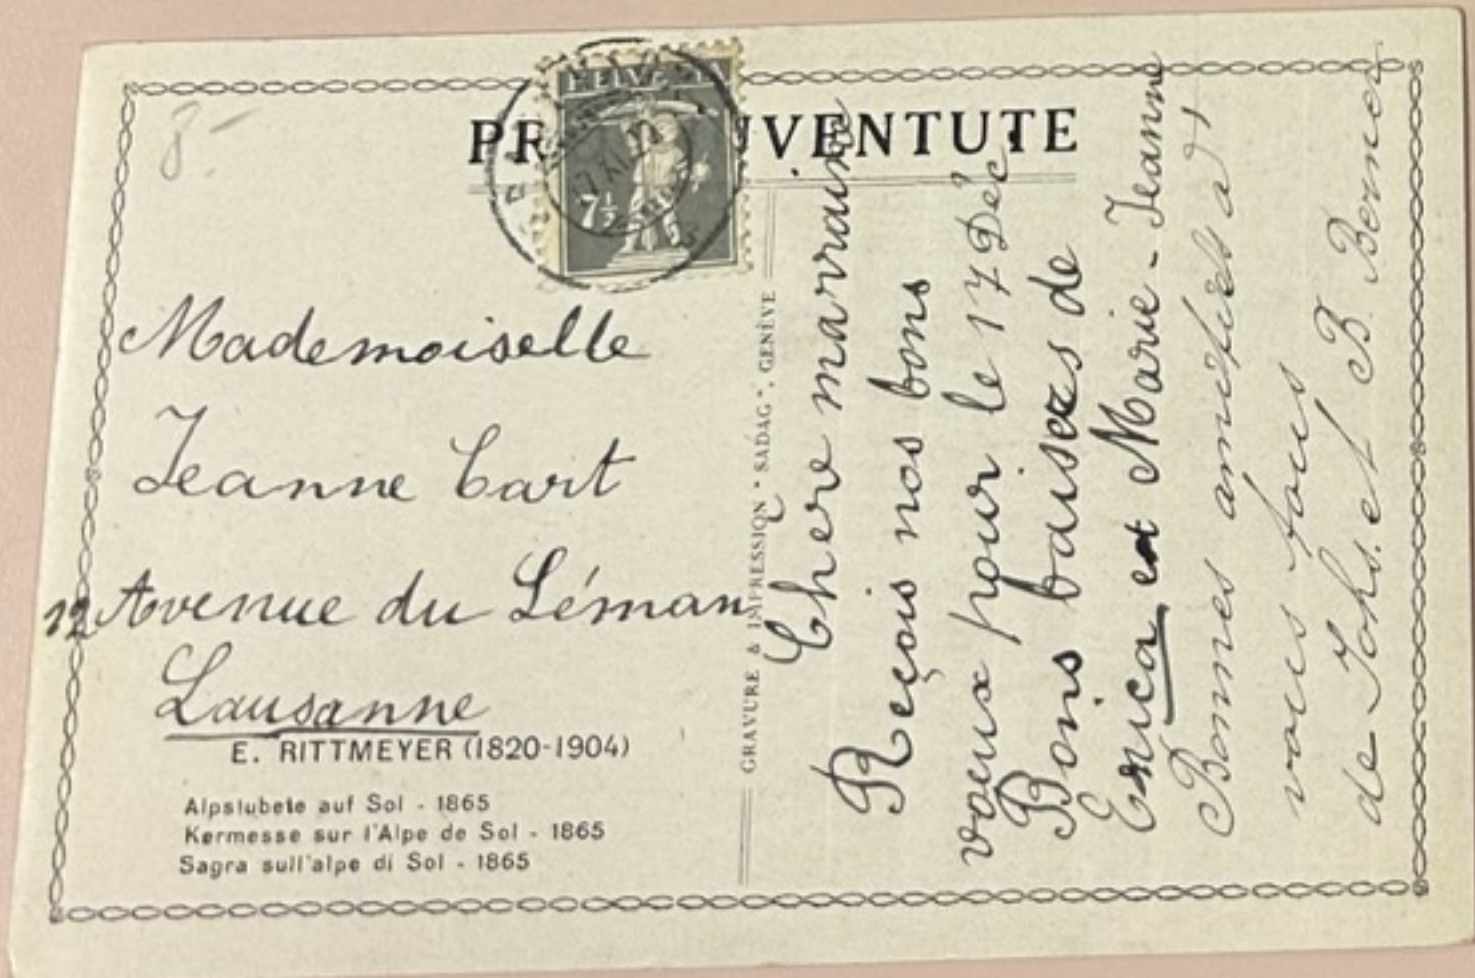 8.-
HELVETIA
7½
PRO JUVENTUTE
Mademoiselle
Jeanne Cart
12 Avenue du Léman
Lausanne
E. RITTMEYER (1820-1904)
Alpstubete auf Sol - 1865
Kermesse sur l'Alpe de Sol - 1865
Sagra sull'alpe di Sol - 1865
GRAVURE & IMPRESSION • SADAG • GENÈVE
Chère marraine
Reçois nos bons
vœux pour le 17 Déc.
Bons baisers de
Erica et Marie-Jeanne
Bonnes amitiés à
vous tous
de Johs. et B. Berner